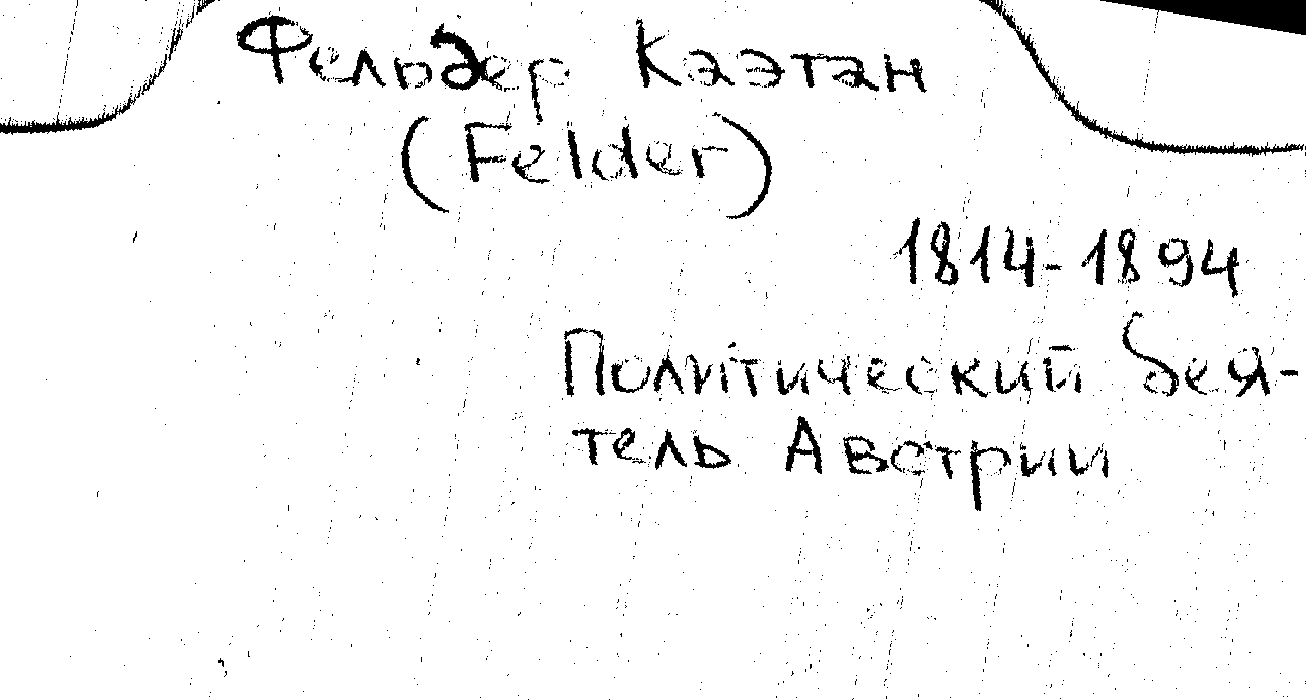 Фельдер Каэтан
(Felder)
1814-1894
Политический дея-
тель Австрии